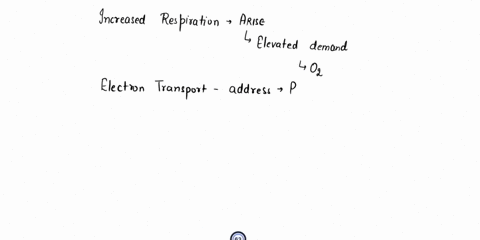 Increased Respiration → Arise
↳ Elevated demand
↳ O₂
Electron Transport - address → P